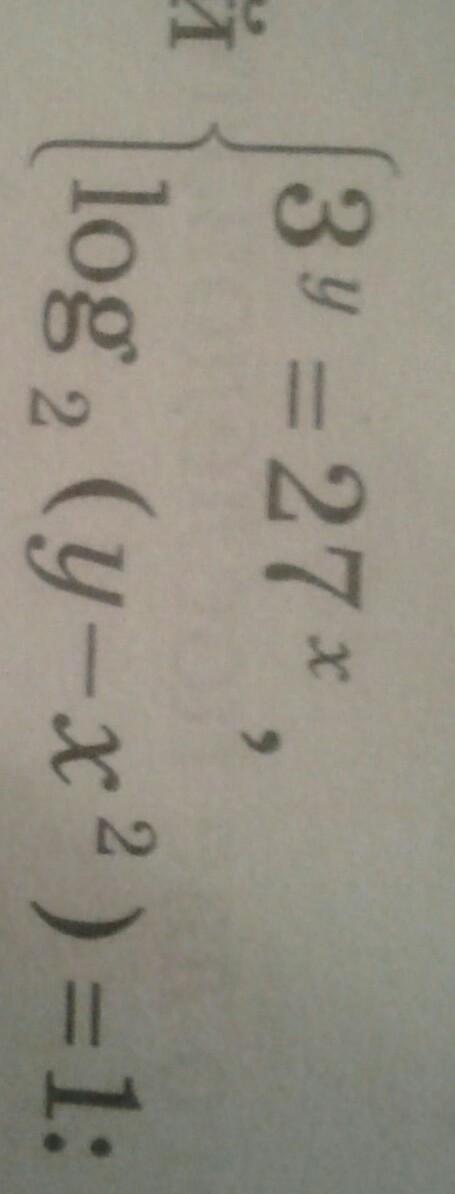 й
3^y = 27^x,
log_2 (y – x^2) = 1: